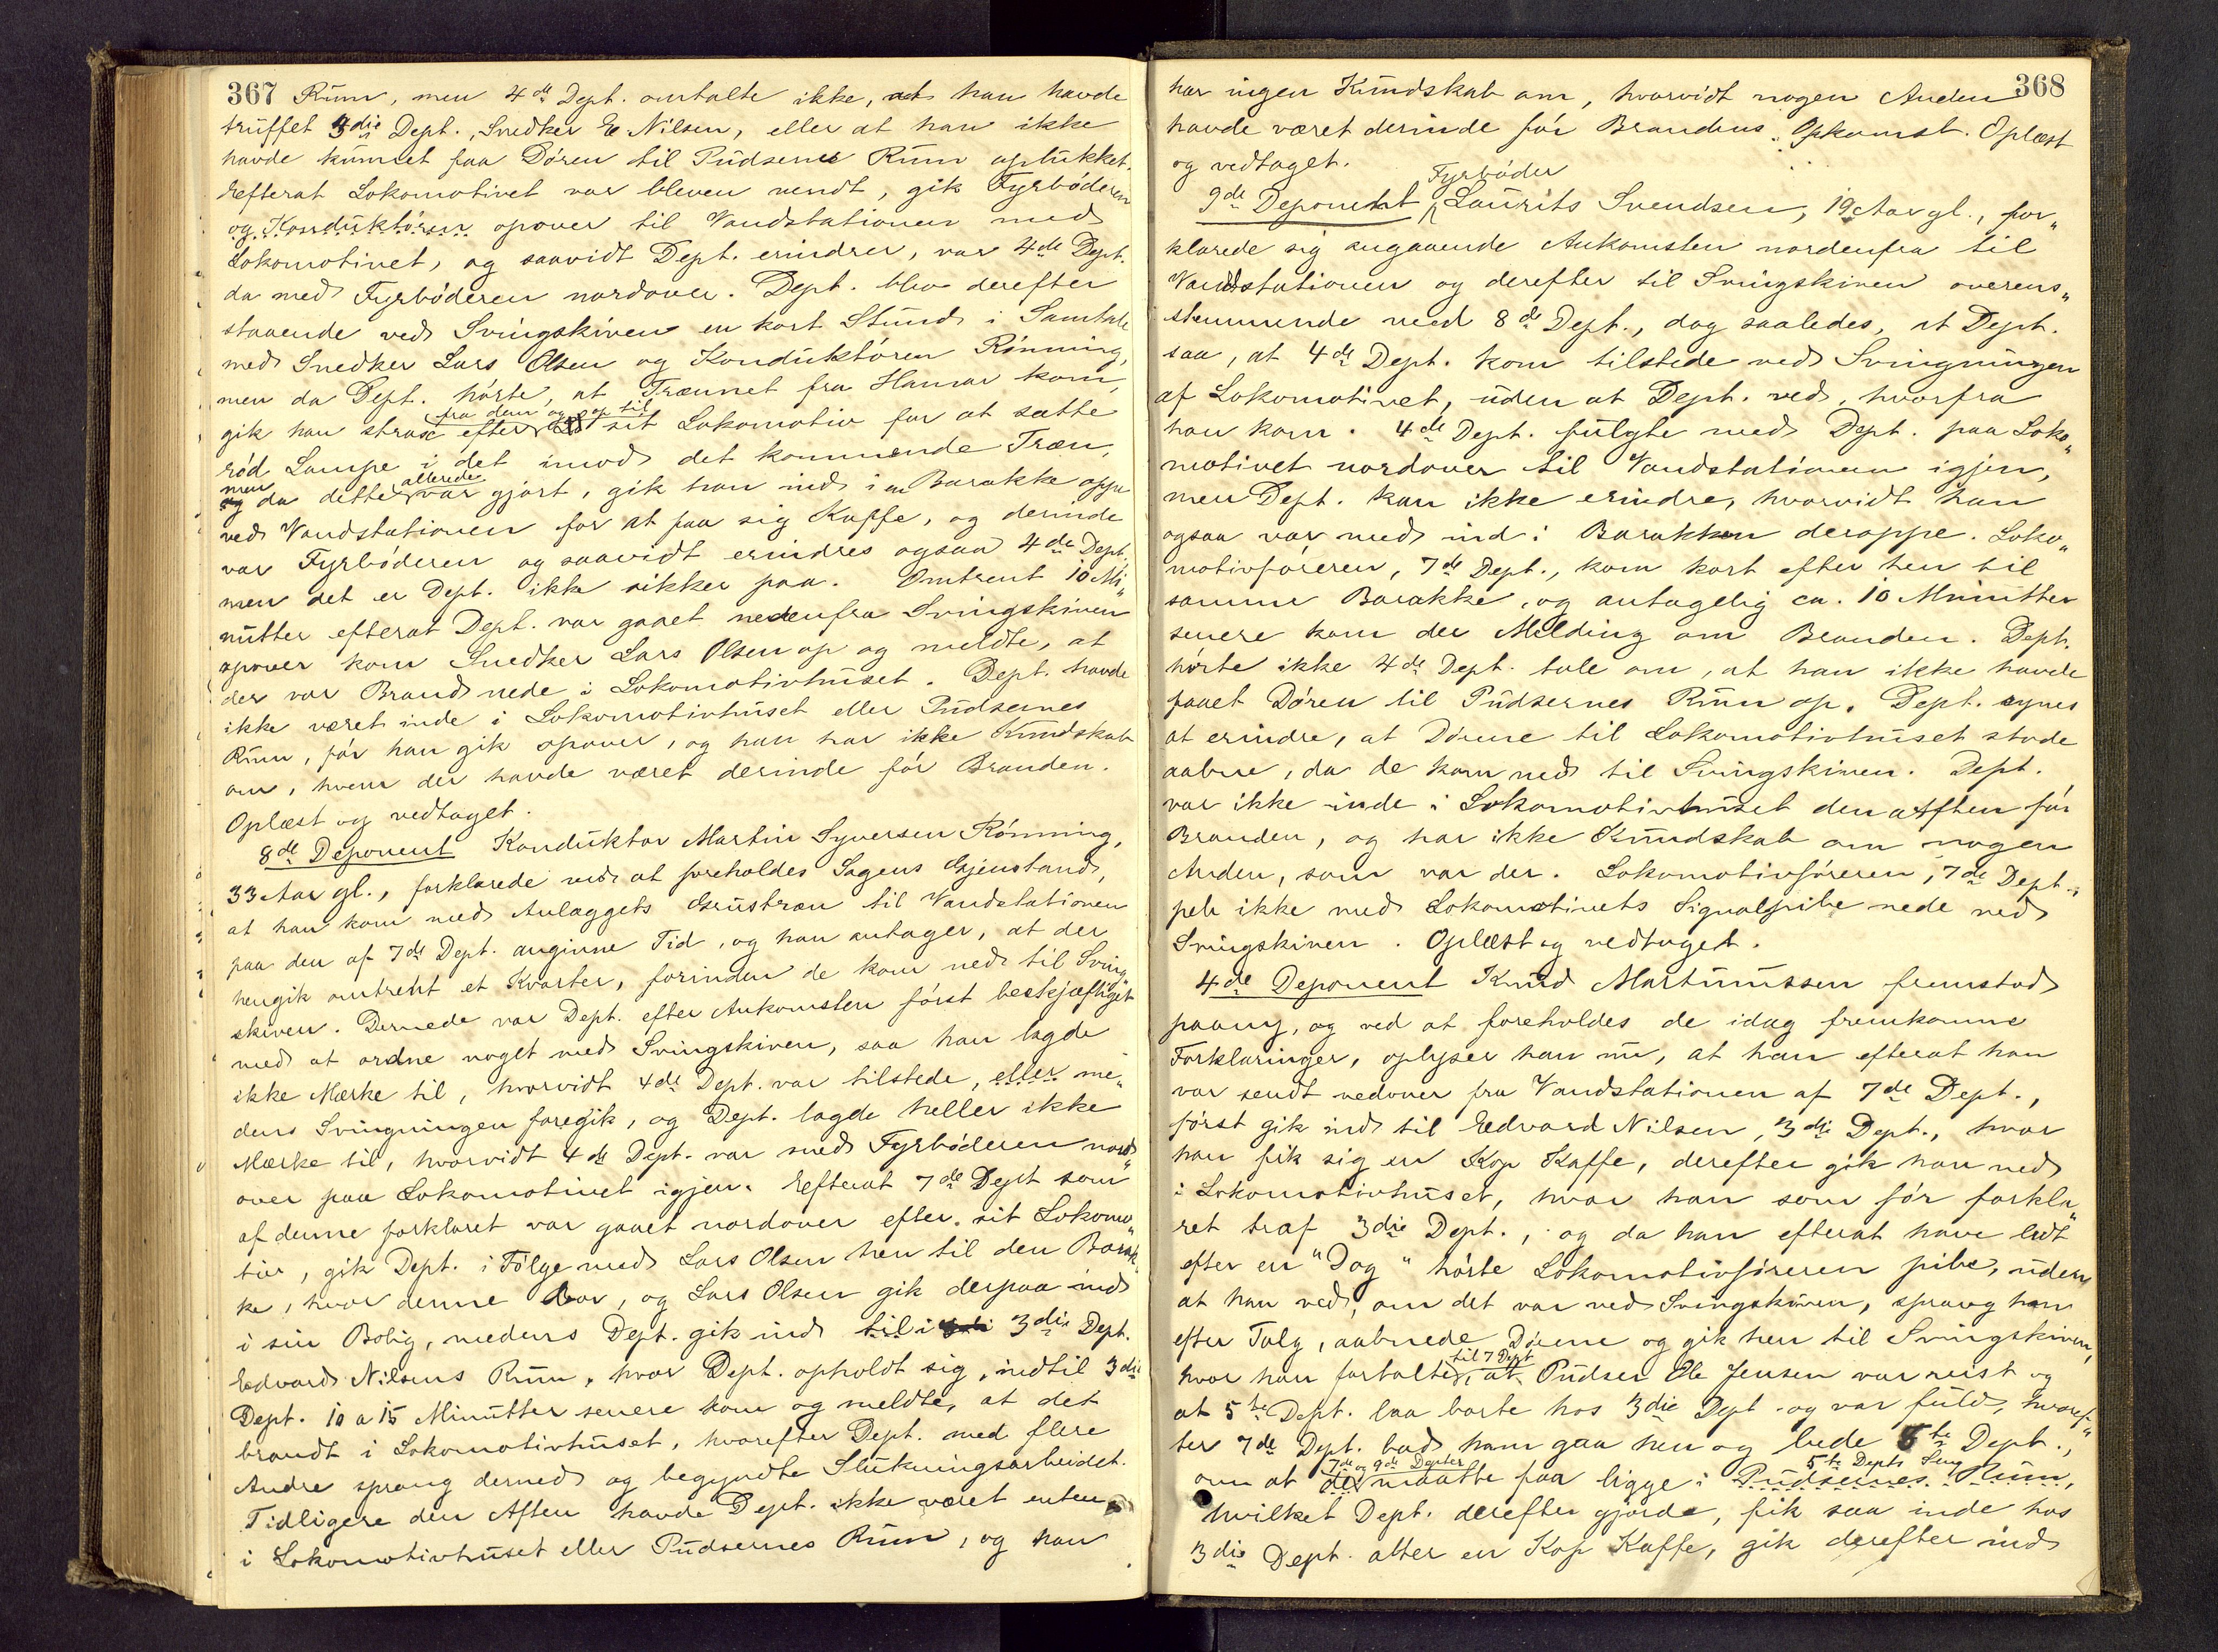 367 Rum, men 4de Dept. omtalte ikke, at han havde
truffet 3die Dept., Snedker E. Nilsen, eller at han ikke
havde kunnet faa Døren til Pudsernes Rum oplukket.
Efterat Lokomotivet var bleven vendt, gik Fyrbøderen
og Konduktøren opover til Vandstationen med
Lokomotivet, og saavidt Dept. erindrer, var 4de Dept.
da med Fyrbøderen nordover. Dept. blev derefter
staaende ved Svingskiven en kort Stund i Samtale
med Snedker Lars Olsen og Konduktøren Rønning,
men da Dept. hørte, at Trænnet fra Hamar kom,
fra dem og op til
gik han strax efter sit Lokomotiv for at sætte
rød Lampe i det imod det kommende Træn,
men allerede
og da dette var gjort, gik han ind i en Barakke oppe
ved Vandstationen for at faa sig Kaffe, og derinde
var Fyrbøderen og saavidt erindres ogsaa 4de Dept.,
men det er Dept. ikke sikker paa. Omtrent 10 Mi„
nutter efterat Dept. var gaaet nedenfra Svingskiven
opover kom Snedker Lars Olsen op og meldte, at
der var Brand nede i Lokomotivhuset. Dept. havde
ikke været inde i Lokomotivhuset eller Pudsernes
Rum, før han gik opover, og han har ikke Kundskab
om, hvem der havde været derinde før Branden.
Oplæst og vedtaget.
8de Deponent Konduktør Martin Syversen Rønning,
33 Aar gl., forklarede ved at foreholdes Sagens Gjenstand,
at han kom med Anlæggets Grustræn til Vandstationen
paa den af 7de Dept. anginne Tid, og han antager, at der
hengik omtrent et Kvarter, forinden de kom ned til Sving„
skiven. Dernede var Dept. efter Ankomsten først beskjæftiget
med at ordne noget med Svingskiven, saa han lagde
ikke Mærke til, hvorvidt 4de Dept. var tilstede, eller me„
dens Svingningen foregik, og Dept. lagde heller ikke
Mærke til, hvorvidt 4de Dept. var med Fyrbøderen nord„
over paa Lokomotivet igjen. Efterat 7de Dept som
af denne forklaret var gaaet nordover efter sit Lokomo„
tiv, gik Dept. i Følge med Lars Olsen hen til den Barak„
ke, hvor denne bor, og Lars Olsen gik derpaa ind
i sin Bolig, medens Dept. gik ind til i 3die Dept.
Edvard Nilsens Rum, hvor Dept. opholdt sig, indtil 3die
Dept. 10 a 15 Minutter senere kom og meldte, at det
brandt i Lokomotivhuset, hvorefter Dept. med flere
Andre sprang derned og begyndte Slukningsarbeidet.
Tidligere den Aften havde Dept. ikke været enten
i Lokomotivhuset eller Pudsernes Rum, og han
368
har ingen Kundskab om, hvorvidt nogen Anden
havde været derinde før Brandens Opkomst. Oplæst
og vedtaget.
Fyrbøder
9de Deponent Laurits Svendsen, 19 Aar gl., for„
klarede sig angaaende Ankomsten nordenfra til
Vandstationen og derefter til Svingskiven overens„
stemmende med 8de Dept., dog saaledes, at Dept.
saa, at 4de Dept. kom tilstede ved Svingningen
af Lokomotivet, uden at Dept. ved, hvorfra
han kom. 4de Dept. fulgte med Dept. paa Loko„
motivet nordover til Vandstationen igjen,
men Dept. kan ikke erindre, hvorvidt han
ogsaa var med ind i Barakken deroppe. Loko„
motivføreren, 7de Dept., kom kort efter hen til
samme Barakke, og antagelig ca. 10 Minutter
senere kom der Melding om Branden. Dept.
hørte ikke 4de Dept. tale om, at han ikke havde
faaet Døren til Pudsernes Rum op. Dept. synes
at erindre, at Dørene til Lokomotivhuset stode
aabne, da de kom ned til Svingskiven. Dept.
var ikke inde i Lokomotivhuset den Aften før
Branden, og har ikke Kundskab om nogen
Anden, som var der. Lokomotivføreren, 7de Dept.,
peb ikke med Lokomotivets Signalpibe nede ved
Svingskiven. Oplæst og vedtaget.
4de Deponent Knud Martinussen fremstod
paany, og ved at foreholdes de idag fremkomne
Forklaringer, oplyser han nu, at han efterat han
var sendt nedover fra Vandstationen af 7de Dept.,
først gik ind til Edvard Nilsen, 3die Dept., hvor
han fik sig en Kop Kaffe, derefter gik han ned
i Lokomotivhuset, hvor han som før forkla„
ret traf 3die Dept., og da han efterat have ledt
efter en "Dog" hørte Lokomotivføreren pibe, uden
at han ved, om det var ved Svingskiven, sprang han
efter Talg, aabnede Dørene og gik hen til Svingskiven,
til 7 Dept
hvor han fortalte, at Pudser Ole Jensen var reist og
at 5te Dept. laa borte hos 3die Dept. og var fuld, hvoref„
ter 7de Dept. bad ham gaa hen og bede 5te Dept.,
7de og 9de Depter 5te Depts Seng
om at de maatte faa ligge i Pudsernes Rum,
hvilket Dept. derefter gjorde, fik saa inde hos
3die Dept. atter en Kop Kaffe, gik derefter ind